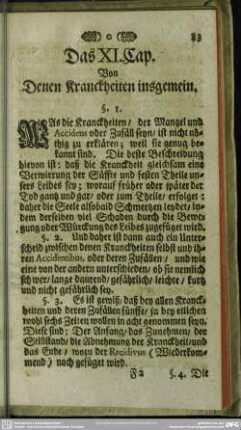 83
Das XI. Cap.
Von
Denen Kranckheiten insgemein.
§. 1.
WAs die Kranckheiten / der Mangel und
Accidens oder Zufäll seyn / ist nicht nö-
thig zu erklären; weil sie genug be-
kannt sind. Die beste Beschreibung
hievon ist: daß die Kranckheit gleichsam eine
Verwirrung der Säffte und festen Theile un-
sers Leibes sey; worauf früher oder später der
Tod gantz und gar / oder zum Theile / erfolget:
daher die Seele alsobald Schmertzen leydet / in-
dem derselben viel Schaden durch die Bewe-
gung oder Würckung des Leibes zugefüget wird.
§. 2. Und daher ist dann auch ein Unter-
scheid zwischen denen Kranckheiten selbst und ih-
ren Accidentibus, oder deren Zufällen / und wie
eine von der andern unterschieden / ob sie nemlich
schwer / lange daurend / gefährlich / leichte / kurtz
und nicht gefährlich sey.
§. 3. Es ist gewiß / daß bey allen Kranck-
heiten und deren Zufällen fünffe / ja bey etlichen
wohl sechs Zeiten wollen in acht genommen seyn.
Diese sind: Der Anfang / das Zunehmen / der
Stillstand / die Abnehmung der Kranckheit / und
das Ende / wozu der Recidivus (Wiederkom-
mend) noch gefüget wird.
F 2 §. 4. Die